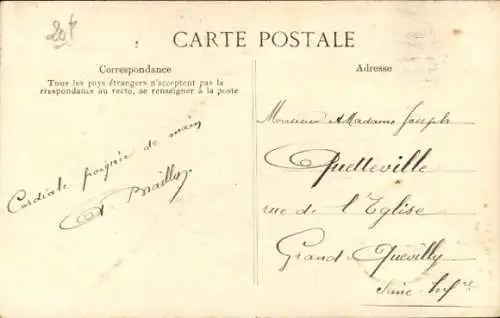 20f
CARTE POSTALE
Correspondance
Tous les pays étrangers n'acceptent pas la
rrespondance au recto, se renseigner à la poste
Cordiale poignée de main
Bailly.
Adresse
Monsieur & Madame Joseph
Quetteville
rue de l'Eglise
Grand Quevilly
Seine Infre